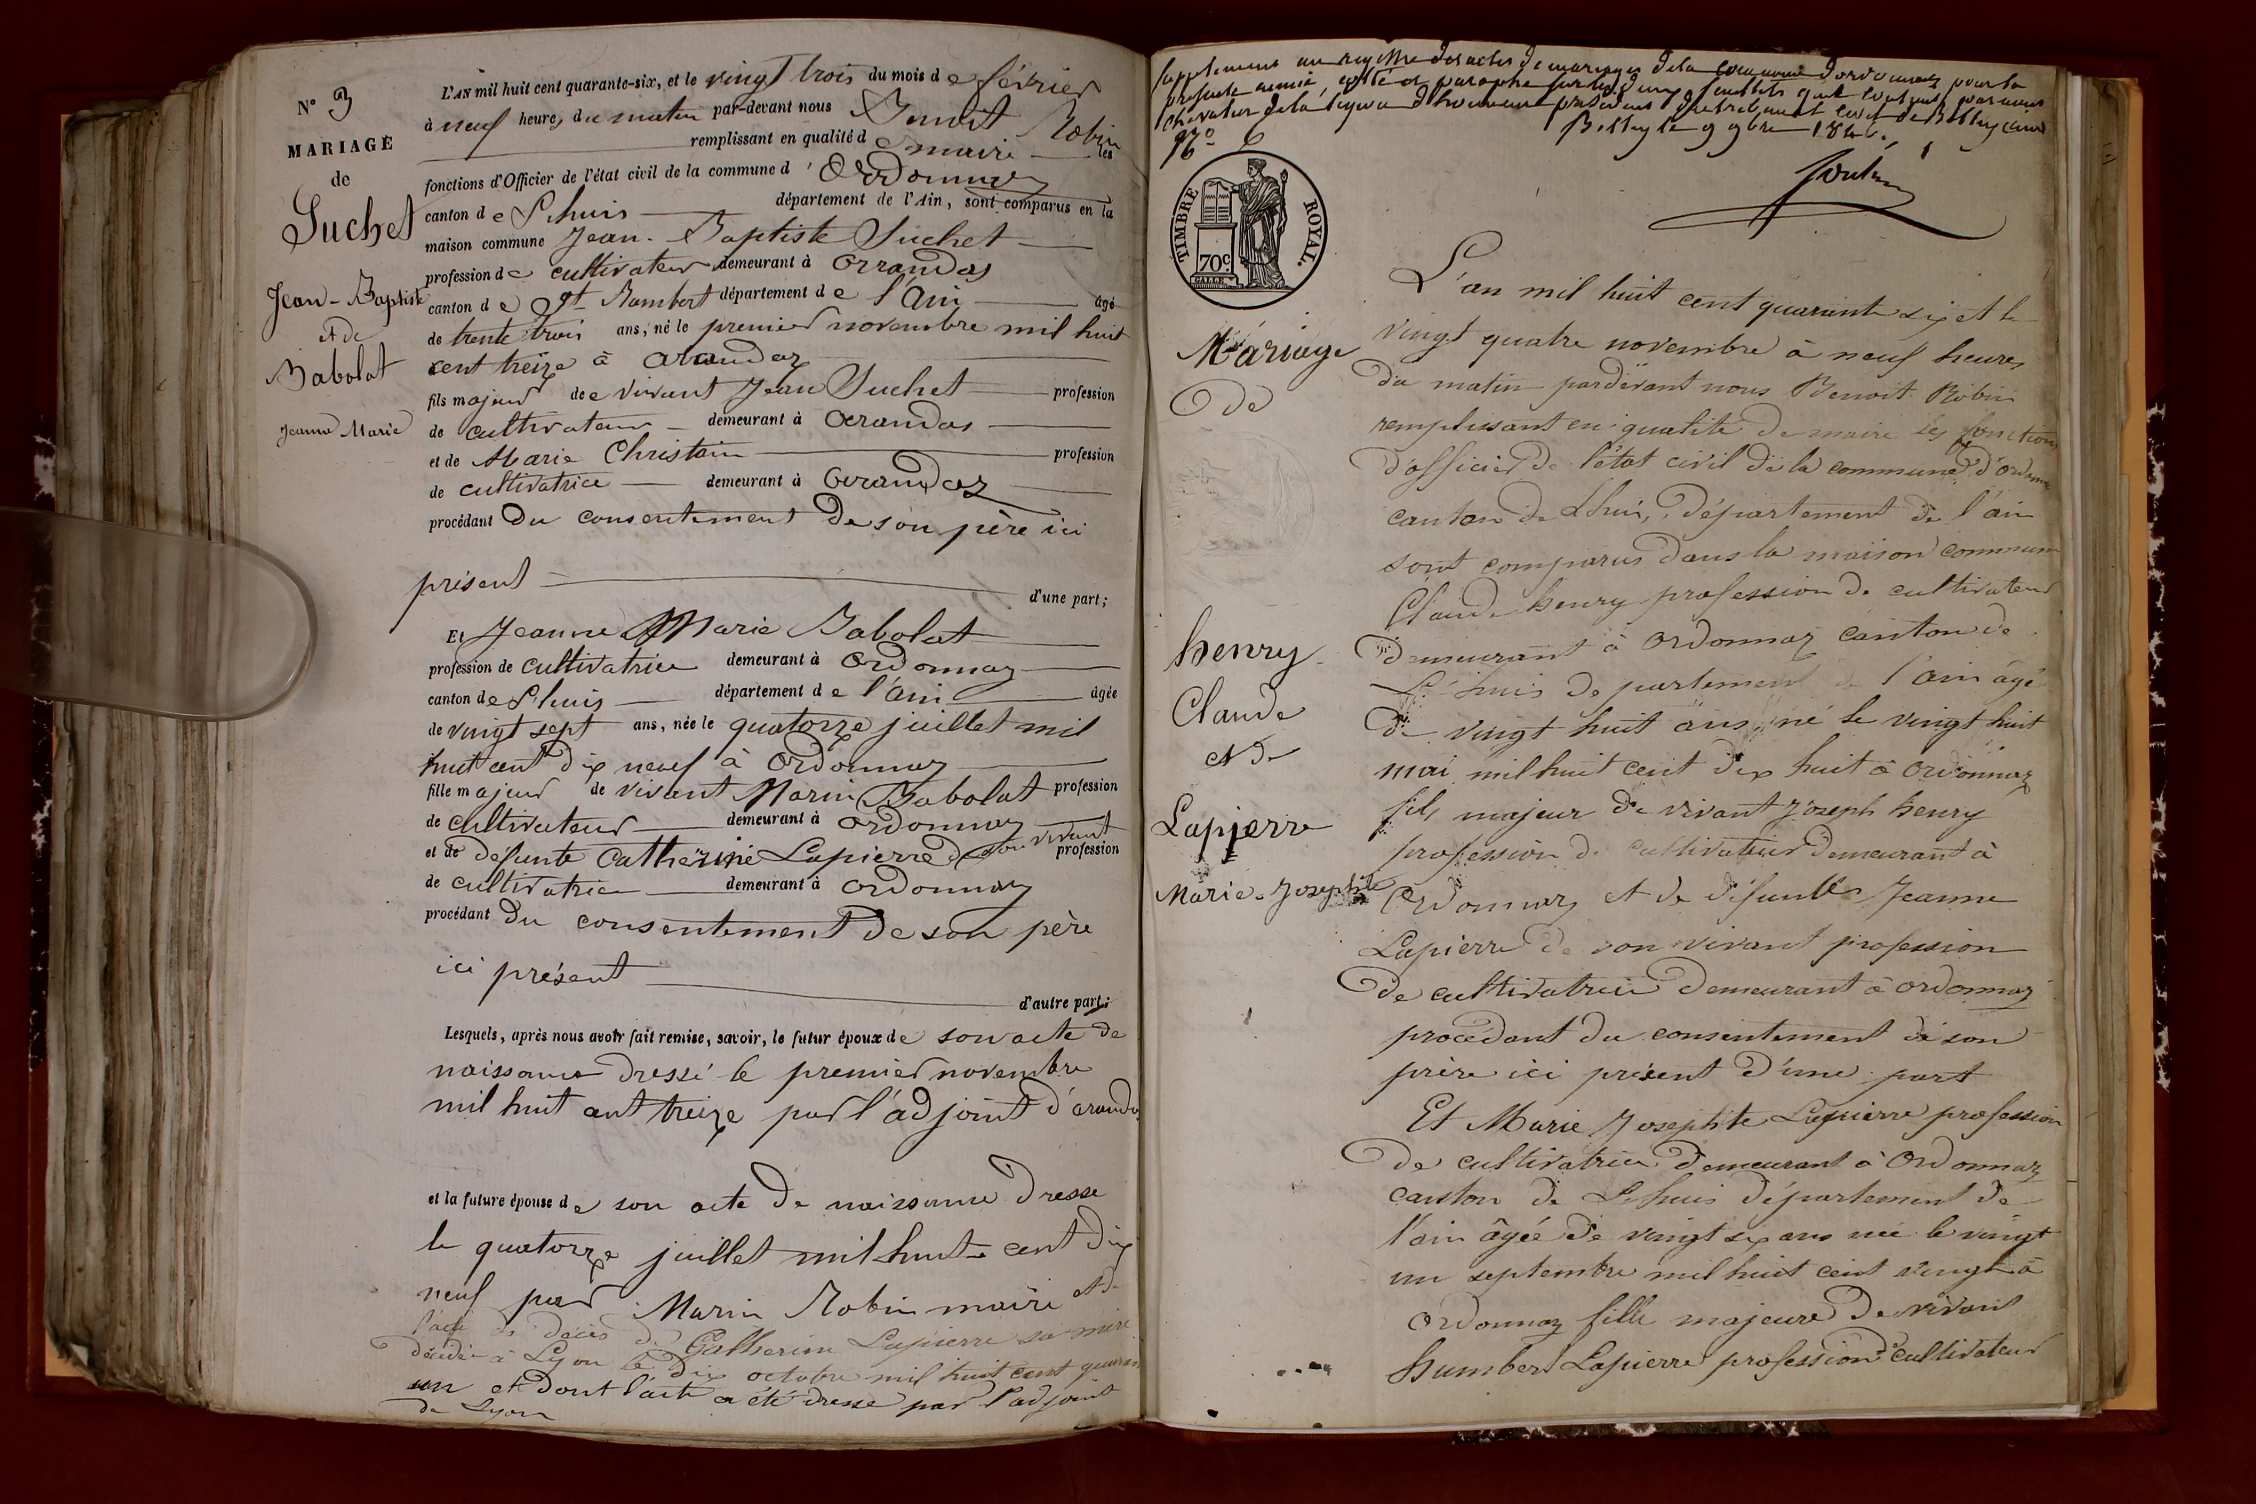 N° 3
MARIAGE
de
Suchet
Jean-Baptiste
et de
Babolat
Jeanne Marie
L'AN mil huit cent quarante-six, et le vingt trois du mois de février
à neuf heures du matin par-devant nous Benoit Robin
remplissant en qualité de maire les
fonctions d'Officier de l'état civil de la commune d'Ordonnaz
canton de Lhuis département de l'Ain, sont comparus en la
maison commune Jean-Baptiste Suchet
profession de cultivateur demeurant à Arandas
canton de St Rambert département de l'Ain âgé
de trente trois ans, né le premier novembre mil huit
cent treize à Arandaz
fils majeur de vivant Jean Suchet profession
de cultivateur demeurant à Arandas
et de Marie Christain profession
de cultivatrice demeurant à Arandaz
procédant du consentement de son père ici
présent
d'une part;
Et Jeanne Marie Babolat
profession de cultivatrice demeurant à Ordonnaz
canton de Lhuis département de l'Ain âgée
de vingt sept ans, née le quatorze juillet mil
huit cent dix neuf à Ordonnaz
fille majeur de vivant Marin Babolat profession
de cultivateur demeurant à Ordonnaz
et de défunte Catherine Lapierre de son vivant profession
de cultivatrice demeurant à Ordonnaz
procédant du consentement de son père
ici présent
d'autre part;
Lesquels, après nous avoir fait remise, savoir, le futur époux de son acte de
naissance dressé le premier novembre
mil huit cent treize par l'adjoint d'arandas
et la future épouse de son acte de naissance dresse
le quatorze juillet mil huit cent dix
neuf par Marin Robin maire et de
l'acte de décès de Catherine Lapierre sa mère
décédée à Lyon le dix octobre mil huit cent quarante
un et dont l'acte a été dressé par l'adjoint
de Lyon
Supplement au registre des actes de mariages de la commune d'ordonnaz pour la
presente année, coté et paraphé par
chevalier de la légion d'honneur président du tribunal civil de Belley
Belley le 9 9bre 1846.
TIMBRE ROYAL.
70c.
Mariage
de
henry
Claude
et de
Lapierre
Marie-Josephte
L'an mil huit cent quarante six et le
vingt quatre novembre à neuf heures
du matin pardevant nous Benoit Robin
remplissant en qualité de maire les fonctions
d'officier de l'état civil de la commune d'ordonnaz
canton de Lhuis, département de l'ain
sont comparus dans la maison commune
Claude henry profession de cultivateur
demeurant à ordonnaz canton de
Lhuis departement de l'ain âgé
de vingt huit ans né le vingt huit
mai mil huit cent dix huit à ordonnaz
fils majeur de vivant Joseph henry
profession de cultivateur demeurant à
Ordonnaz et de défunte Jeanne
Lapierre de son vivant profession
de cultivatrice demeurant à ordonnaz
procédant du consentement de son
père ici présent d'une part
Et Marie Josephte Lapierre profession
de cultivatrice demeurant à Ordonnaz
canton de Lhuis département de
l'ain âgée de vingt six ans née le vingt
un septembre mil huit cent vingt à
ordonnaz fille majeure de vivant
humbert Lapierre profession de cultivateur